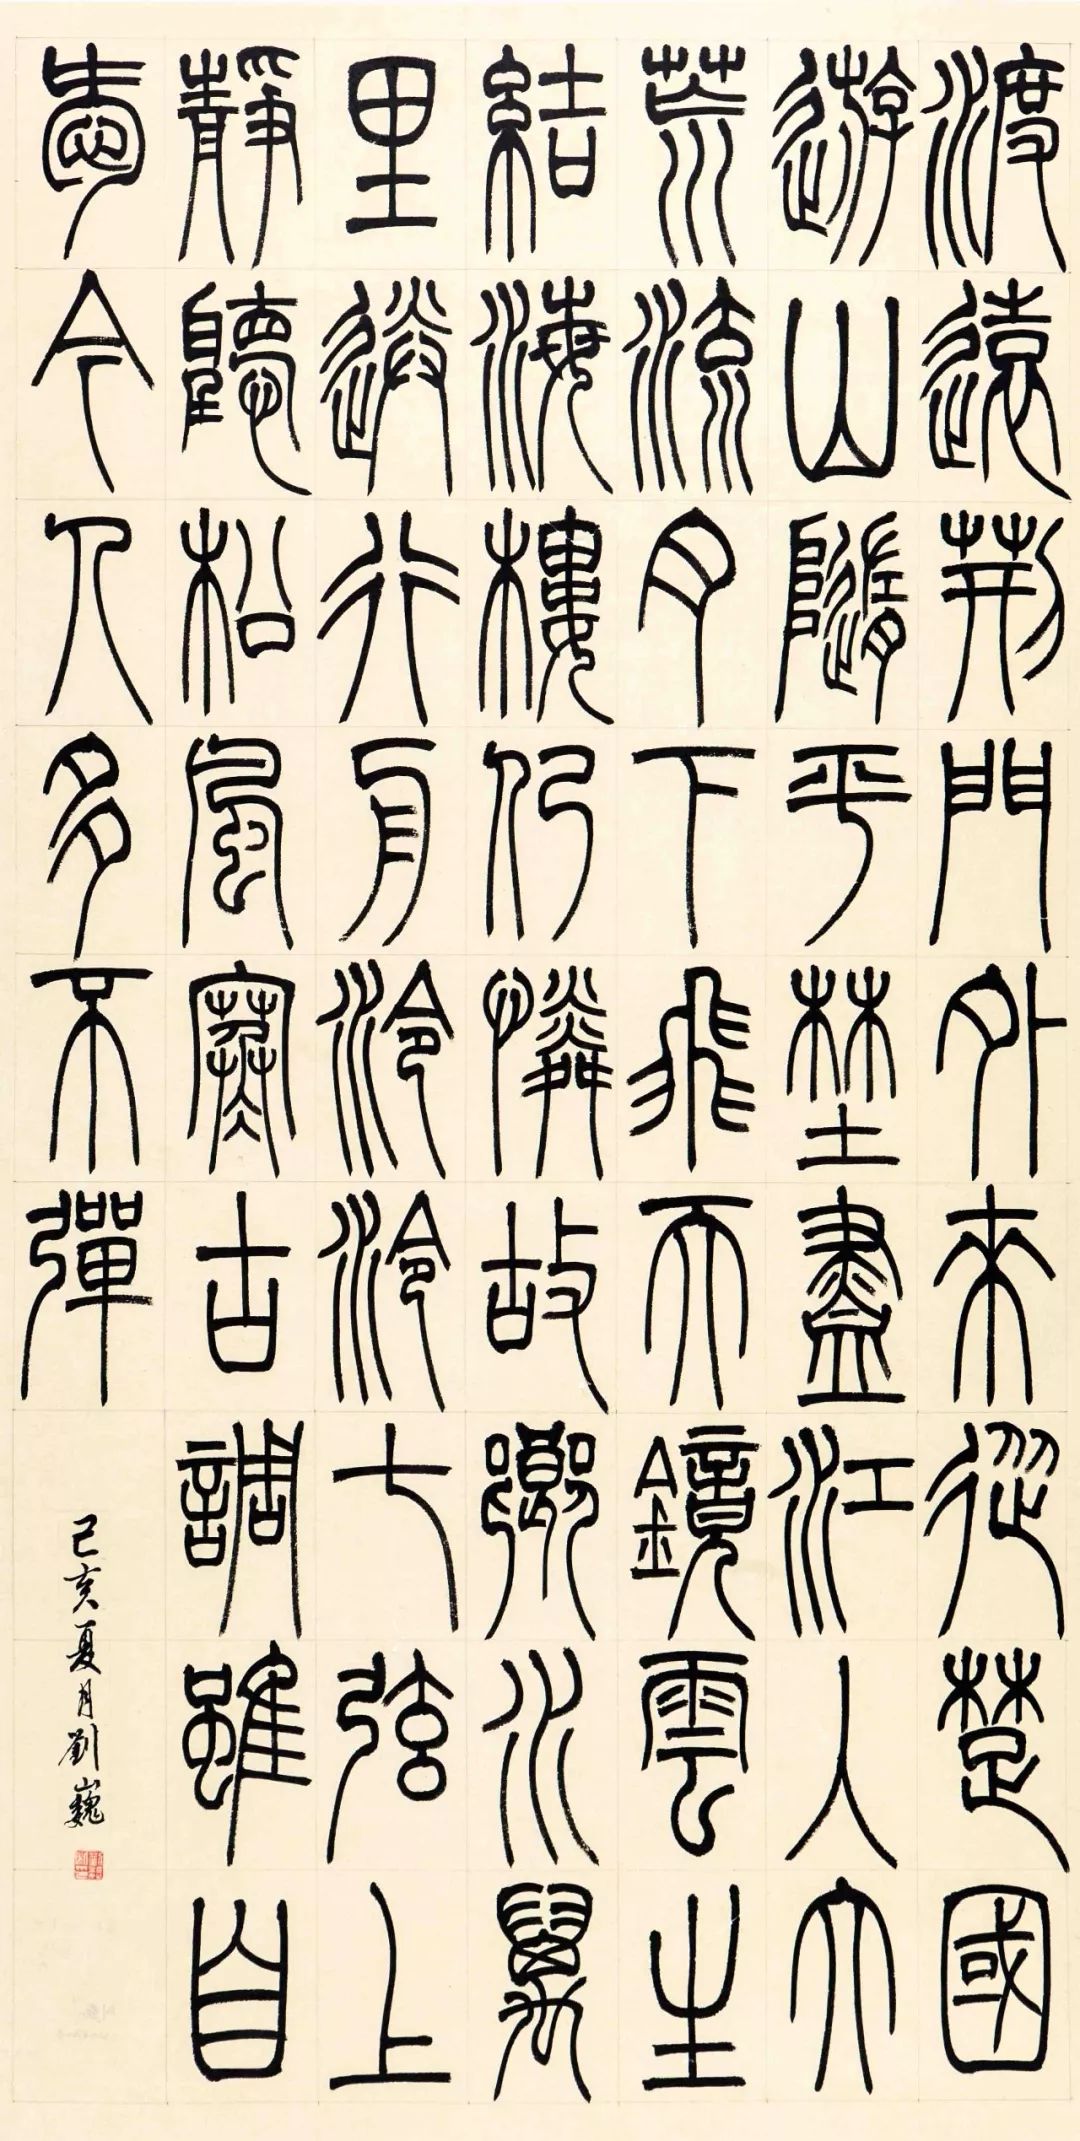 渡遠荊門外來從楚國
遊山隨平埜盡江入大
荒流月下飛天鏡雲生
結海樓仍憐故鄉水萬
里送行舟泠泠七弦上
靜聽松風寒古調雖自
愛今人多不彈
己亥夏月劉巍